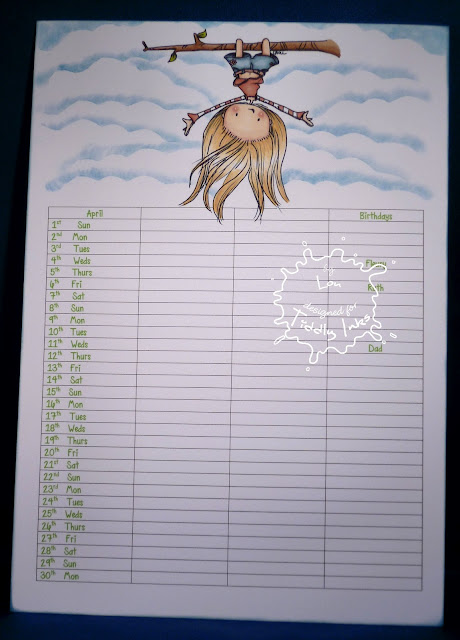 April Birthdays
1st Sun
2nd Mon
3rd Tues
4th Weds
5th Thurs
6th Fri Ruth
7th Sat
8th Sun
9th Mon
10th Tues
11th Weds Dad
12th Thurs
13th Fri
14th Sat
15th Sun
16th Mon
17th Tues
18th Weds
19th Thurs
20th Fri
21st Sat
22nd Sun
23rd Mon
24th Tues
25th Weds
26th Thurs
27th Fri
28th Sat
29th Sun
30th Mon
by
Lou
designed for
Tiddly Inks